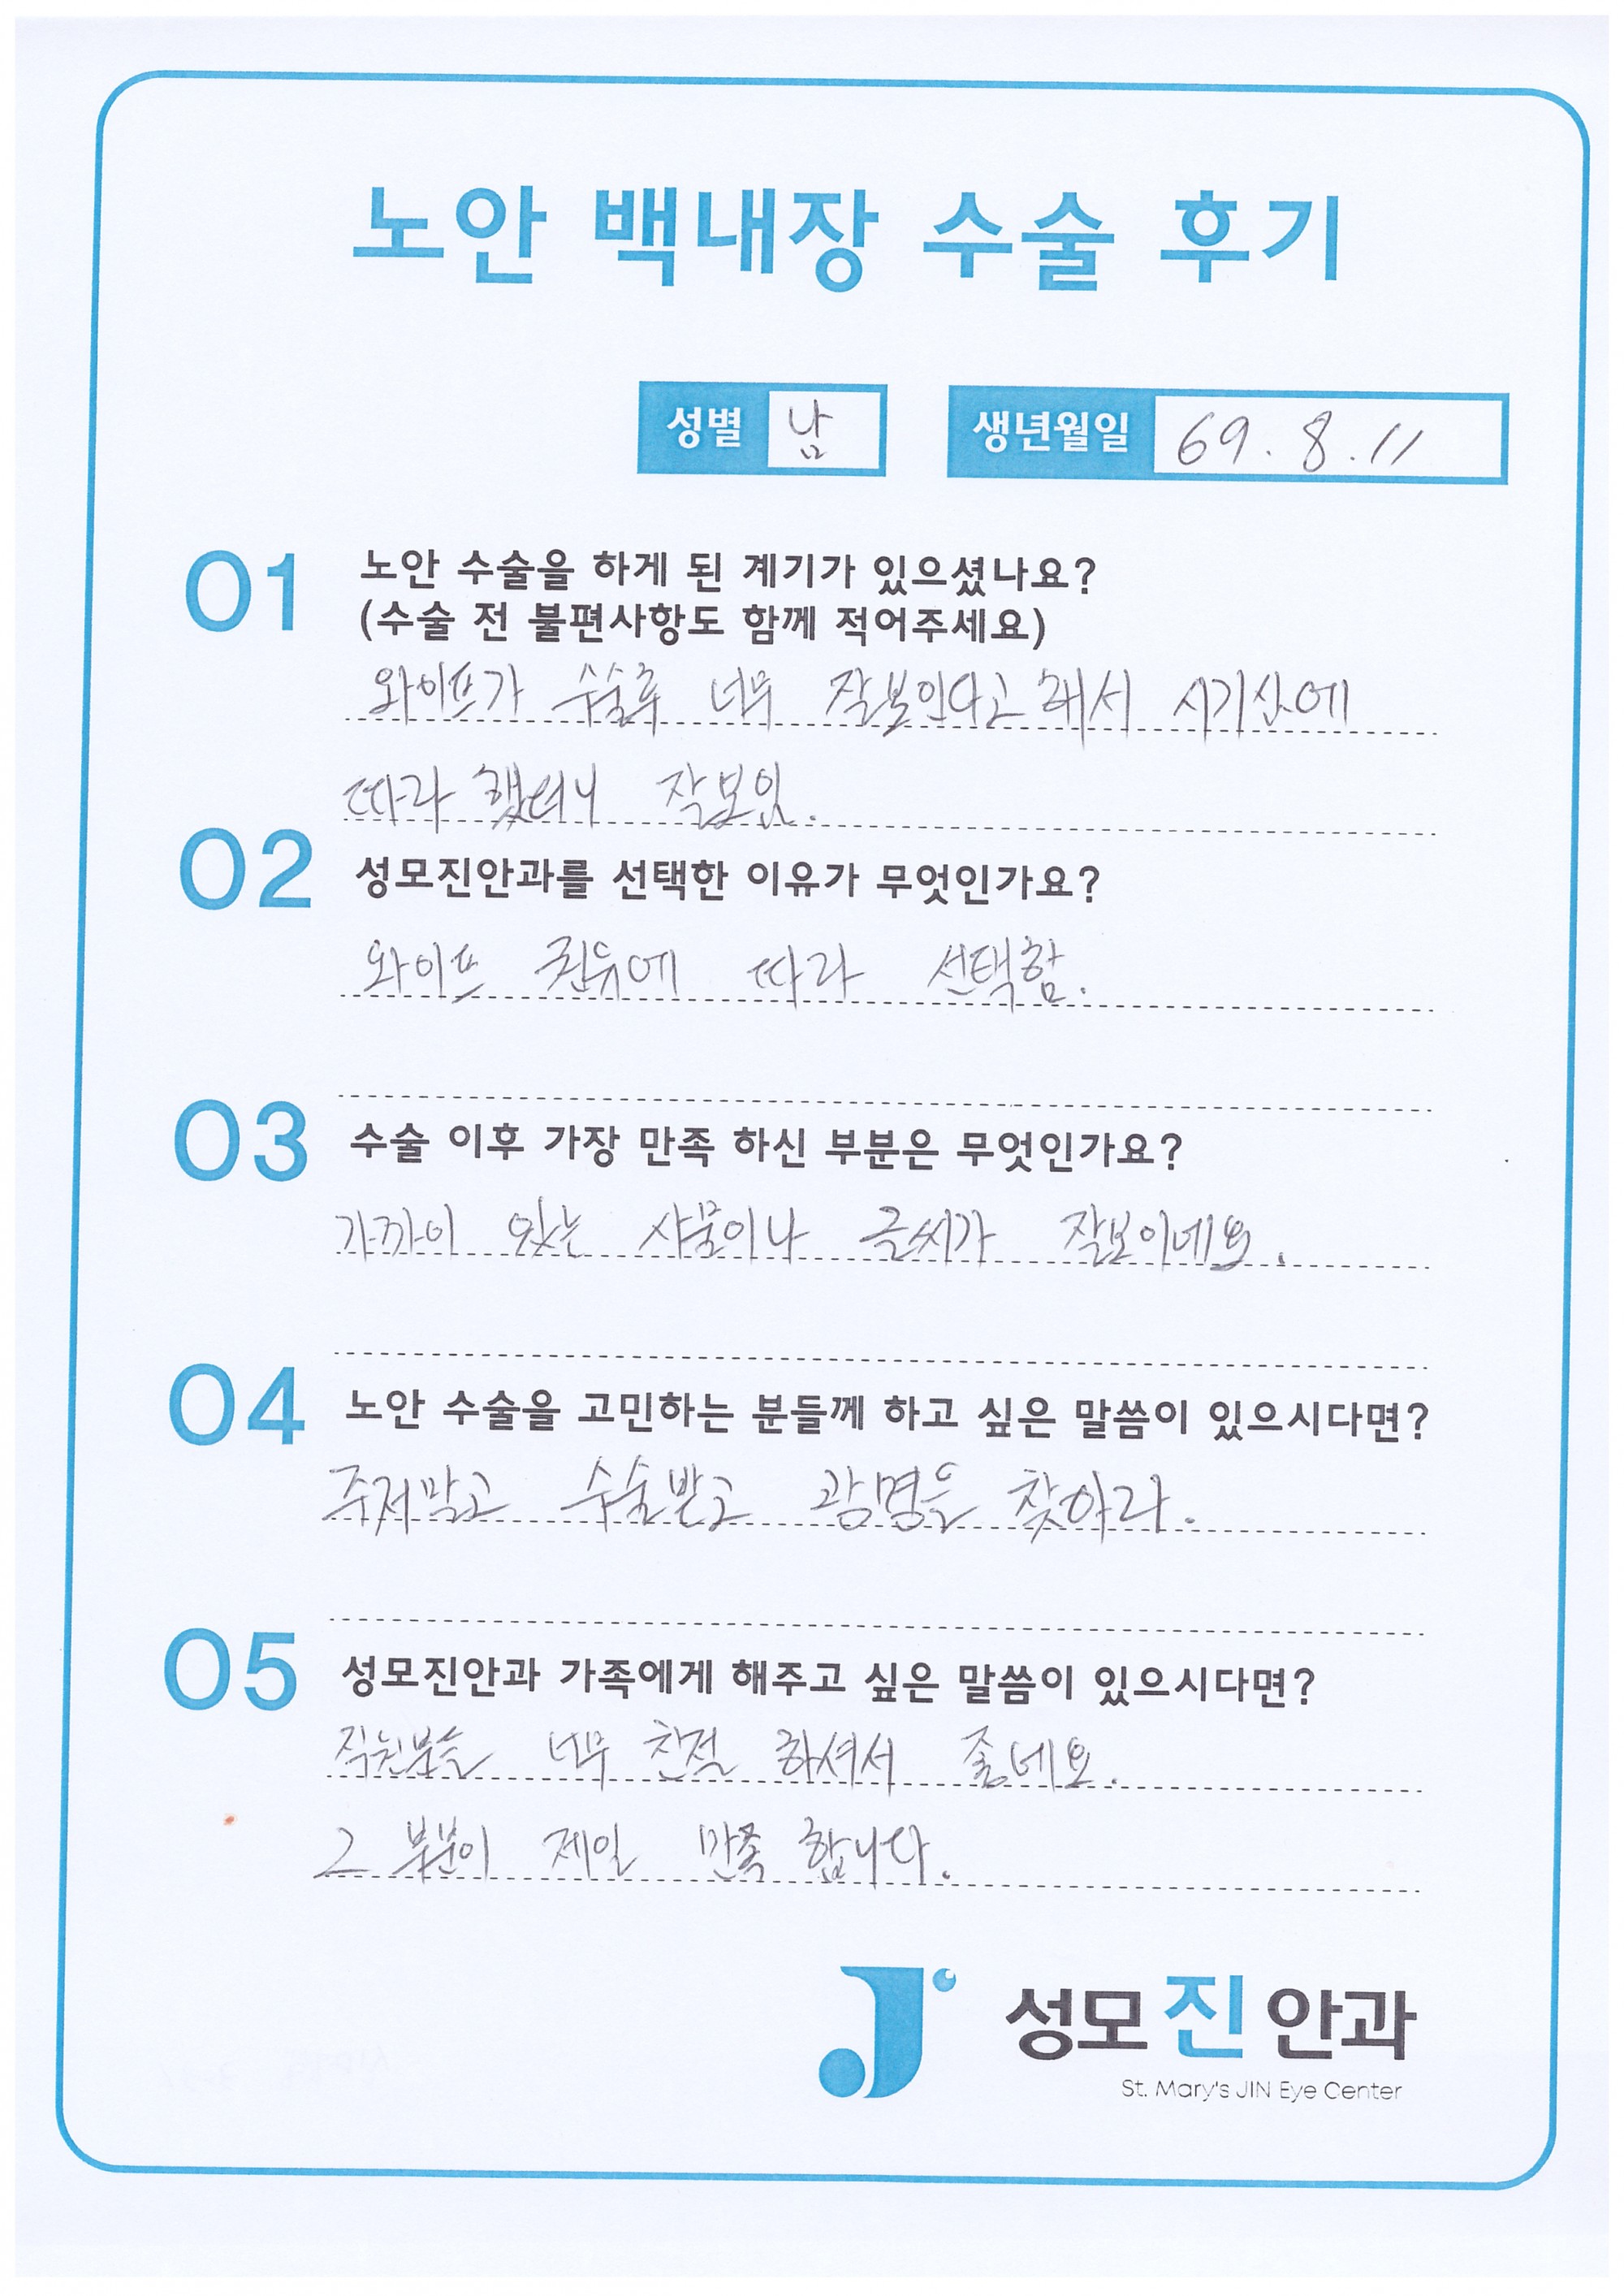 노안 백내장 수술 후기
성별 남 생년월일 69. 8. 11
01 노안 수술을 하게 된 계기가 있으셨나요?
(수술 전 불편사항도 함께 적어주세요)
와이프가 수술후 너무 잘보인다고 해서 시기심에
따라 했더니 잘보임.
02 성모진안과를 선택한 이유가 무엇인가요?
와이프 권유에 따라 선택함.
03 수술 이후 가장 만족 하신 부분은 무엇인가요?
가까이 있는 사물이나 글씨가 잘보이네요.
04 노안 수술을 고민하는 분들께 하고 싶은 말씀이 있으시다면?
주저말고 수술받고 광명을 찾아라.
05 성모진안과 가족에게 해주고 싶은 말씀이 있으시다면?
직원분들 너무 친절 하셔서 좋네요.
그 부분이 제일 만족 합니다.
성모진안과
St. Mary's JIN Eye Center